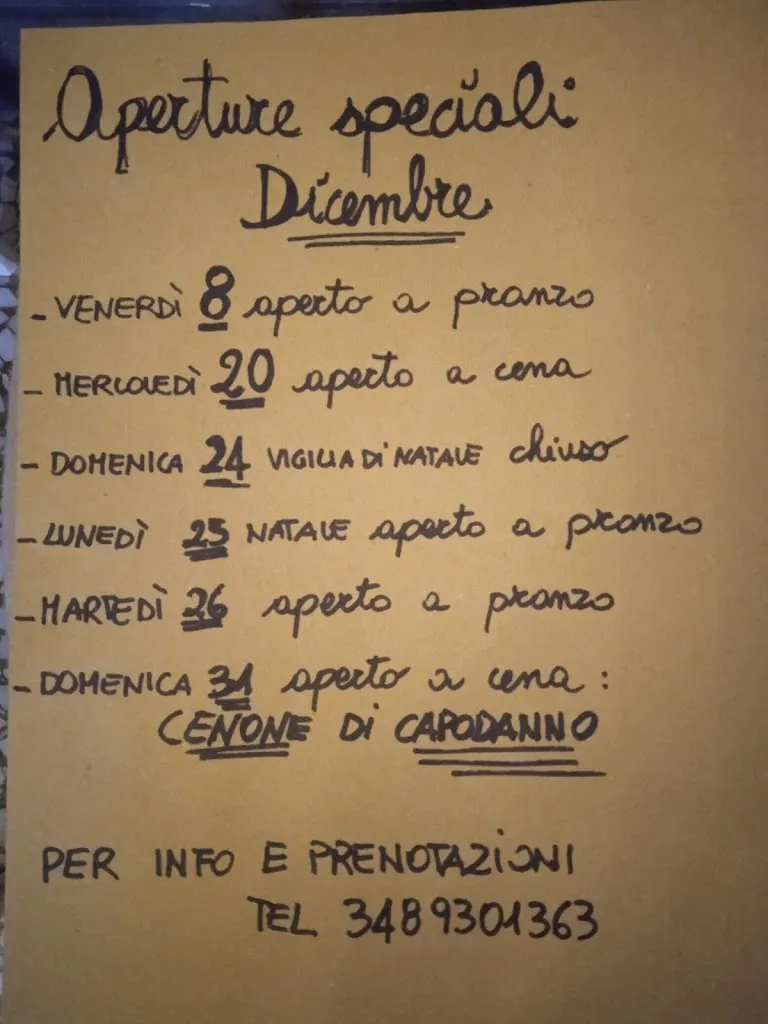 Aperture speciali
Dicembre
- VENERDÌ 8 aperto a pranzo
- MERCOLEDÌ 20 aperto a cena
- DOMENICA 24 VIGILIA DI NATALE chiuso
- LUNEDÌ 25 NATALE aperto a pranzo
- MARTEDÌ 26 aperto a pranzo
- DOMENICA 31 aperto a cena:
CENONE DI CAPODANNO
PER INFO E PRENOTAZIONI
TEL 3489301363